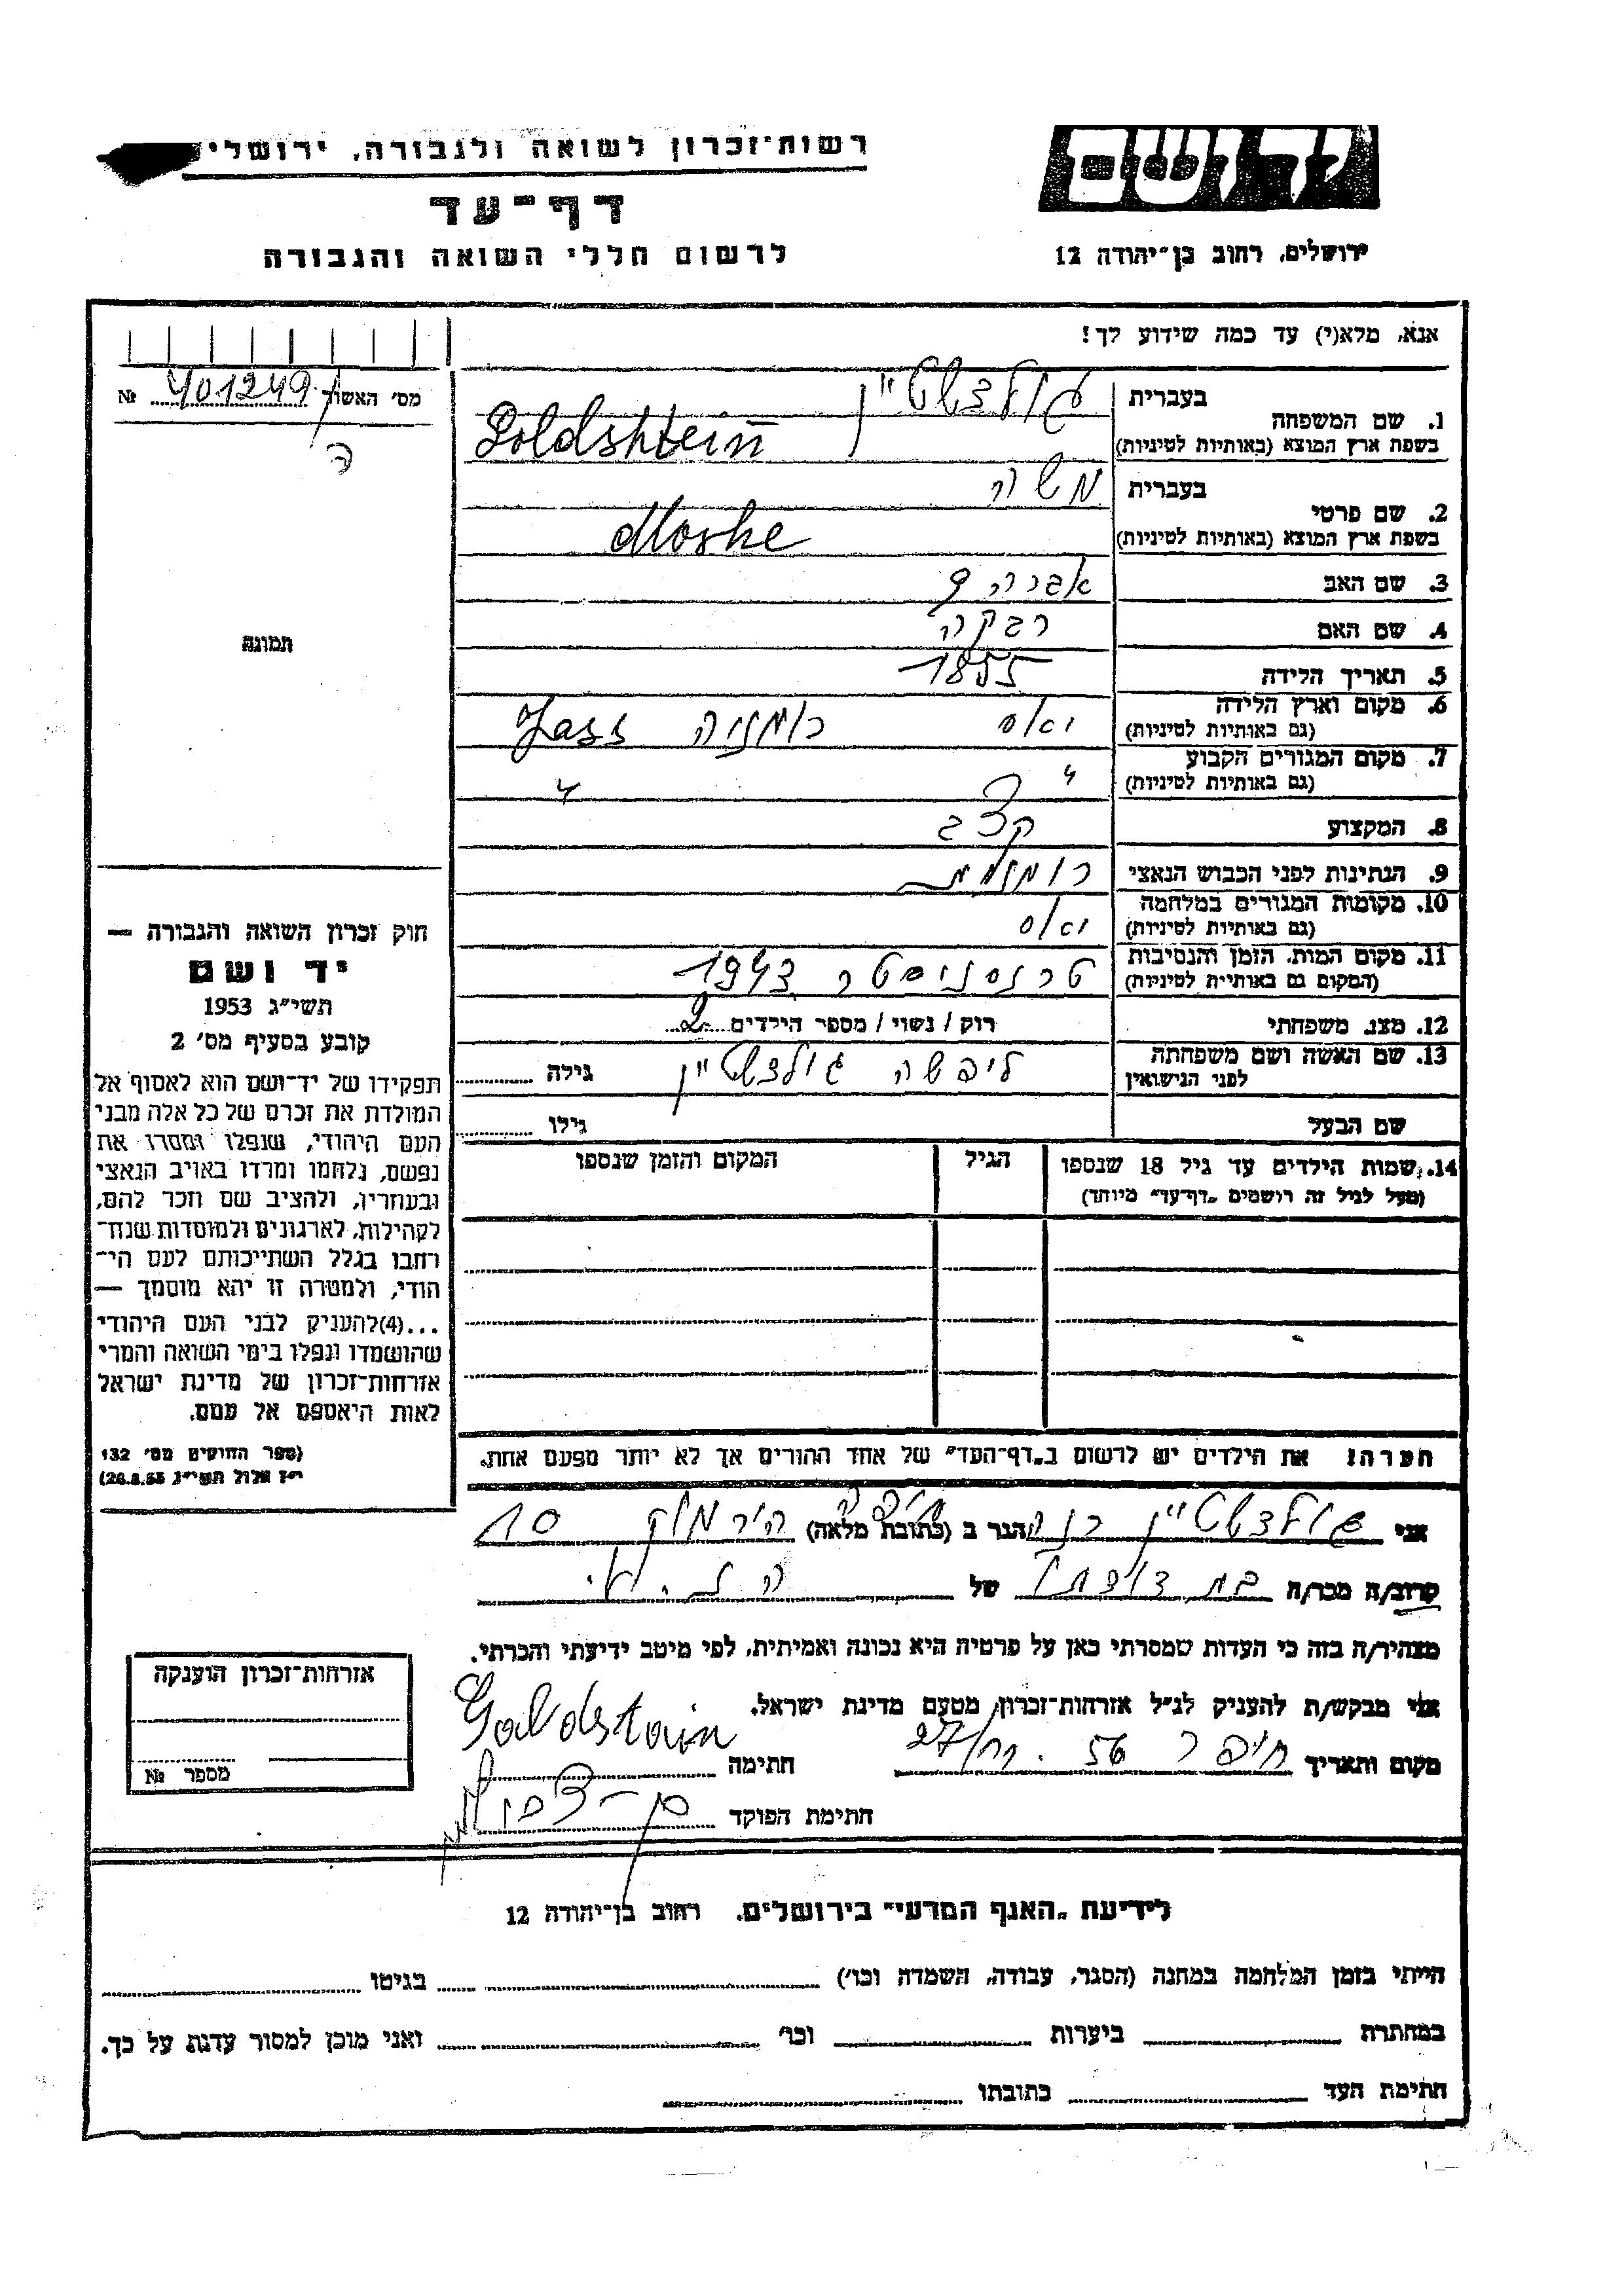 רשות־זכרון לשואה ולגבורה, ירושלי
דף־עד
לרשום חללי השואה והגבורה
יד ושם
ירושלים, רחוב בן־יהודה 12
אנא, מלא(י) עד כמה שידוע לך!
מס׳ האשור 401249 №
ה
תמונה
1. שם המשפחה
בעברית גולדשטיין
בשפת ארץ המוצא (באותיות לטיניות) Goldshtein
2. שם פרטי
בעברית משה
בשפת ארץ המוצא (באותיות לטיניות) Moshe
3. שם האב אברהם
4. שם האם רבקה
5. תאריך הלידה 1855
6. מקום וארץ הלידה יאס רומניה Jass
(גם באותיות לטיניות)
7. מקום המגורים הקבוע " "
(גם באותיות לטיניות)
8. המקצוע קצב
9. הנתינות לפני הכבוש הנאצי
10. מקומות המגורים במלחמה יאס
(גם באותיות לטיניות)
11. מקום המות, הזמן והנסיבות טרנסניסטר 1943
(המקום גם באותיות לטיניות)
12. מצב משפחתי רוק / נשוי / מספר הילדים 2
13. שם האשה ושם משפחתה ליבשה גולדשטיין גילה
לפני הנישואין
שם הבעל גילו
14. שמות הילדים עד גיל 18 שנספו הגיל המקום והזמן שנספו
(מעל לגיל זה רושמים „דף־עד״ מיוחד)
הערה: את הילדים יש לרשום ב„דף־העד״ של אחד ההורים אך לא יותר מפעם אחת.
חוק זכרון השואה והגבורה —
יד ושם
תשי״ג 1953
קובע בסעיף מס׳ 2
תפקידו של יד־ושם הוא לאסוף אל
המולדת את זכרם של כל אלה מבני
העם היהודי, שנפלו ומסרו את
נפשם, נלחמו ומרדו באויב הנאצי
ובעוזריו, ולהציב שם וזכר להם,
לקהילות, לארגונים ולמוסדות שנח־
רבו בגלל השתייכותם לעם הי־
הודי, ולמטרה זו יהא מוסמך —
...(4)להעניק לבני העם היהודי
שהושמדו ונפלו בימי השואה והמרי
אזרחות־זכרון של מדינת ישראל
לאות היאספם אל עמם.
(ספר החוקים מס׳ 132
י״ז אלול תשי״ג 26.8.53)
אני גולדשטיין הגר ב (כתובת מלאה) חיפה הירמוק 10
קרוב/ה מכר/ה בת דודתו של הנ.ל.
מצהיר/ה בזה כי העדות שמסרתי כאן על פרטיה היא נכונה ואמיתית, לפי מיטב ידיעתי והכרתי.
אני מבקש/ת להעניק לנ״ל אזרחות־זכרון מטעם מדינת ישראל.
מקום ותאריך חיפה 27/11.56 חתימה Goldstain
חתימת הפוקד
אזרחות־זכרון הוענקה
מספר №
לידיעת „האגף המדעי״ בירושלים, רחוב בן־יהודה 12
הייתי בזמן המלחמה במחנה (הסגר, עבודה, השמדה וכו׳) בגיטו
במחתרת ביערות וכו׳ ואני מוכן למסור עדות על כך.
חתימת העד כתובתו